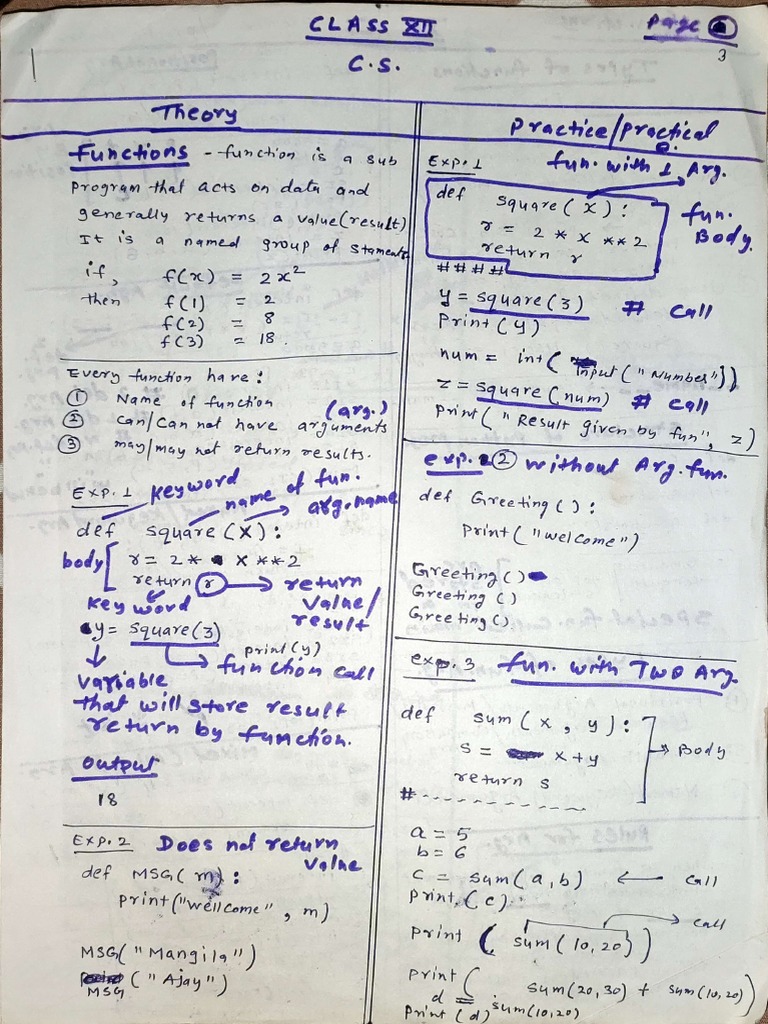 CLASS XII
Page
3
C.S.
Theory
Functions - function is a sub
program that acts on data and
generally returns a value (result)
It is a named group of staments
if, f(x) = 2x²
then f(1) = 2
f(2) = 8
f(3) = 18.
Every function have:
① Name of function
② can/can not have arguments (arg.)
③ may/may not return results.
Exp. 1 keyword name of fun. arg. name
def square (x):
body r = 2* x **2
return r → return value/result
key word
y = square(3)
print(y)
function call
variable
that will store result
return by function.
output
18
Exp. 2 Does not return
value
def MSG( m ):
print("wellcome", m)
MSG("Mangila")
MSG ("Ajay")
Practice/Practical
Exp. 1 fun. with 1 Arg.
def square( x ):
r = 2 * x **2
return r
fun.
Body.
####
y = square(3) # call
Print(y)
num = int( input("Number"))
z = square(num) # call
print("Result given by fun", z)
exp. ② without Arg. fun.
def Greeting( ):
print("welcome")
Greeting( )
Greeting( )
Greeting( ).
exp. 3 fun. with Two Arg.
def sum( x, y ):
s = x+y → Body
return s
# - - - - - - - - - - -
a = 5
b = 6
c = sum( a, b) ← call
print( c)
→ call
print ( sum( 10, 20) )
print ( sum(20,30) + sum(10,20) )
d = sum(10,20)
print (d)